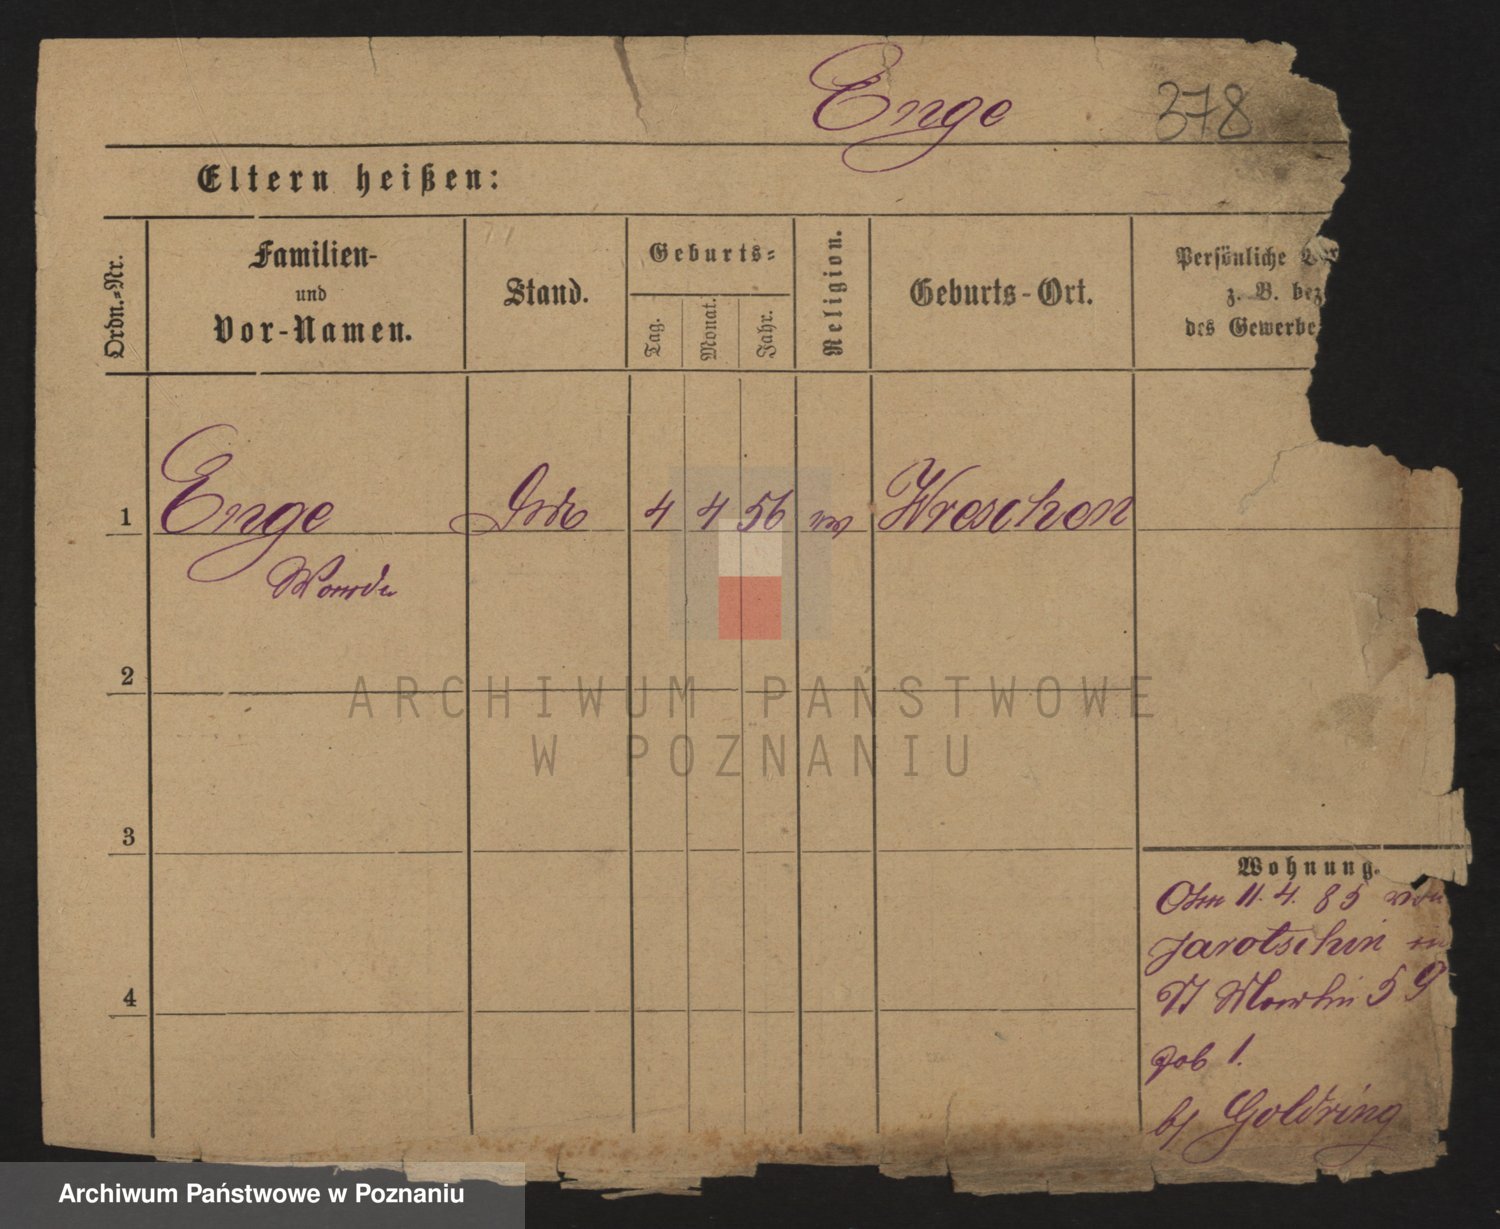 Enge 378
Eltern heißen:
Ordn.-Nr.
Familien-
und
Vor-Namen.
Stand.
Geburts-
Tag.
Monat.
Jahr.
Religion.
Geburts-Ort.
Persönliche
z. B. bez
des Gewerbe
1 Enge 4 4 56 Wreschen
2
3
4
Wohnung.
11. 4. 85 von
Jarotschin in
59
1.
bj Goldring
ARCHIWUM PAŃSTWOWE
W POZNANIU
Archiwum Państwowe w Poznaniu